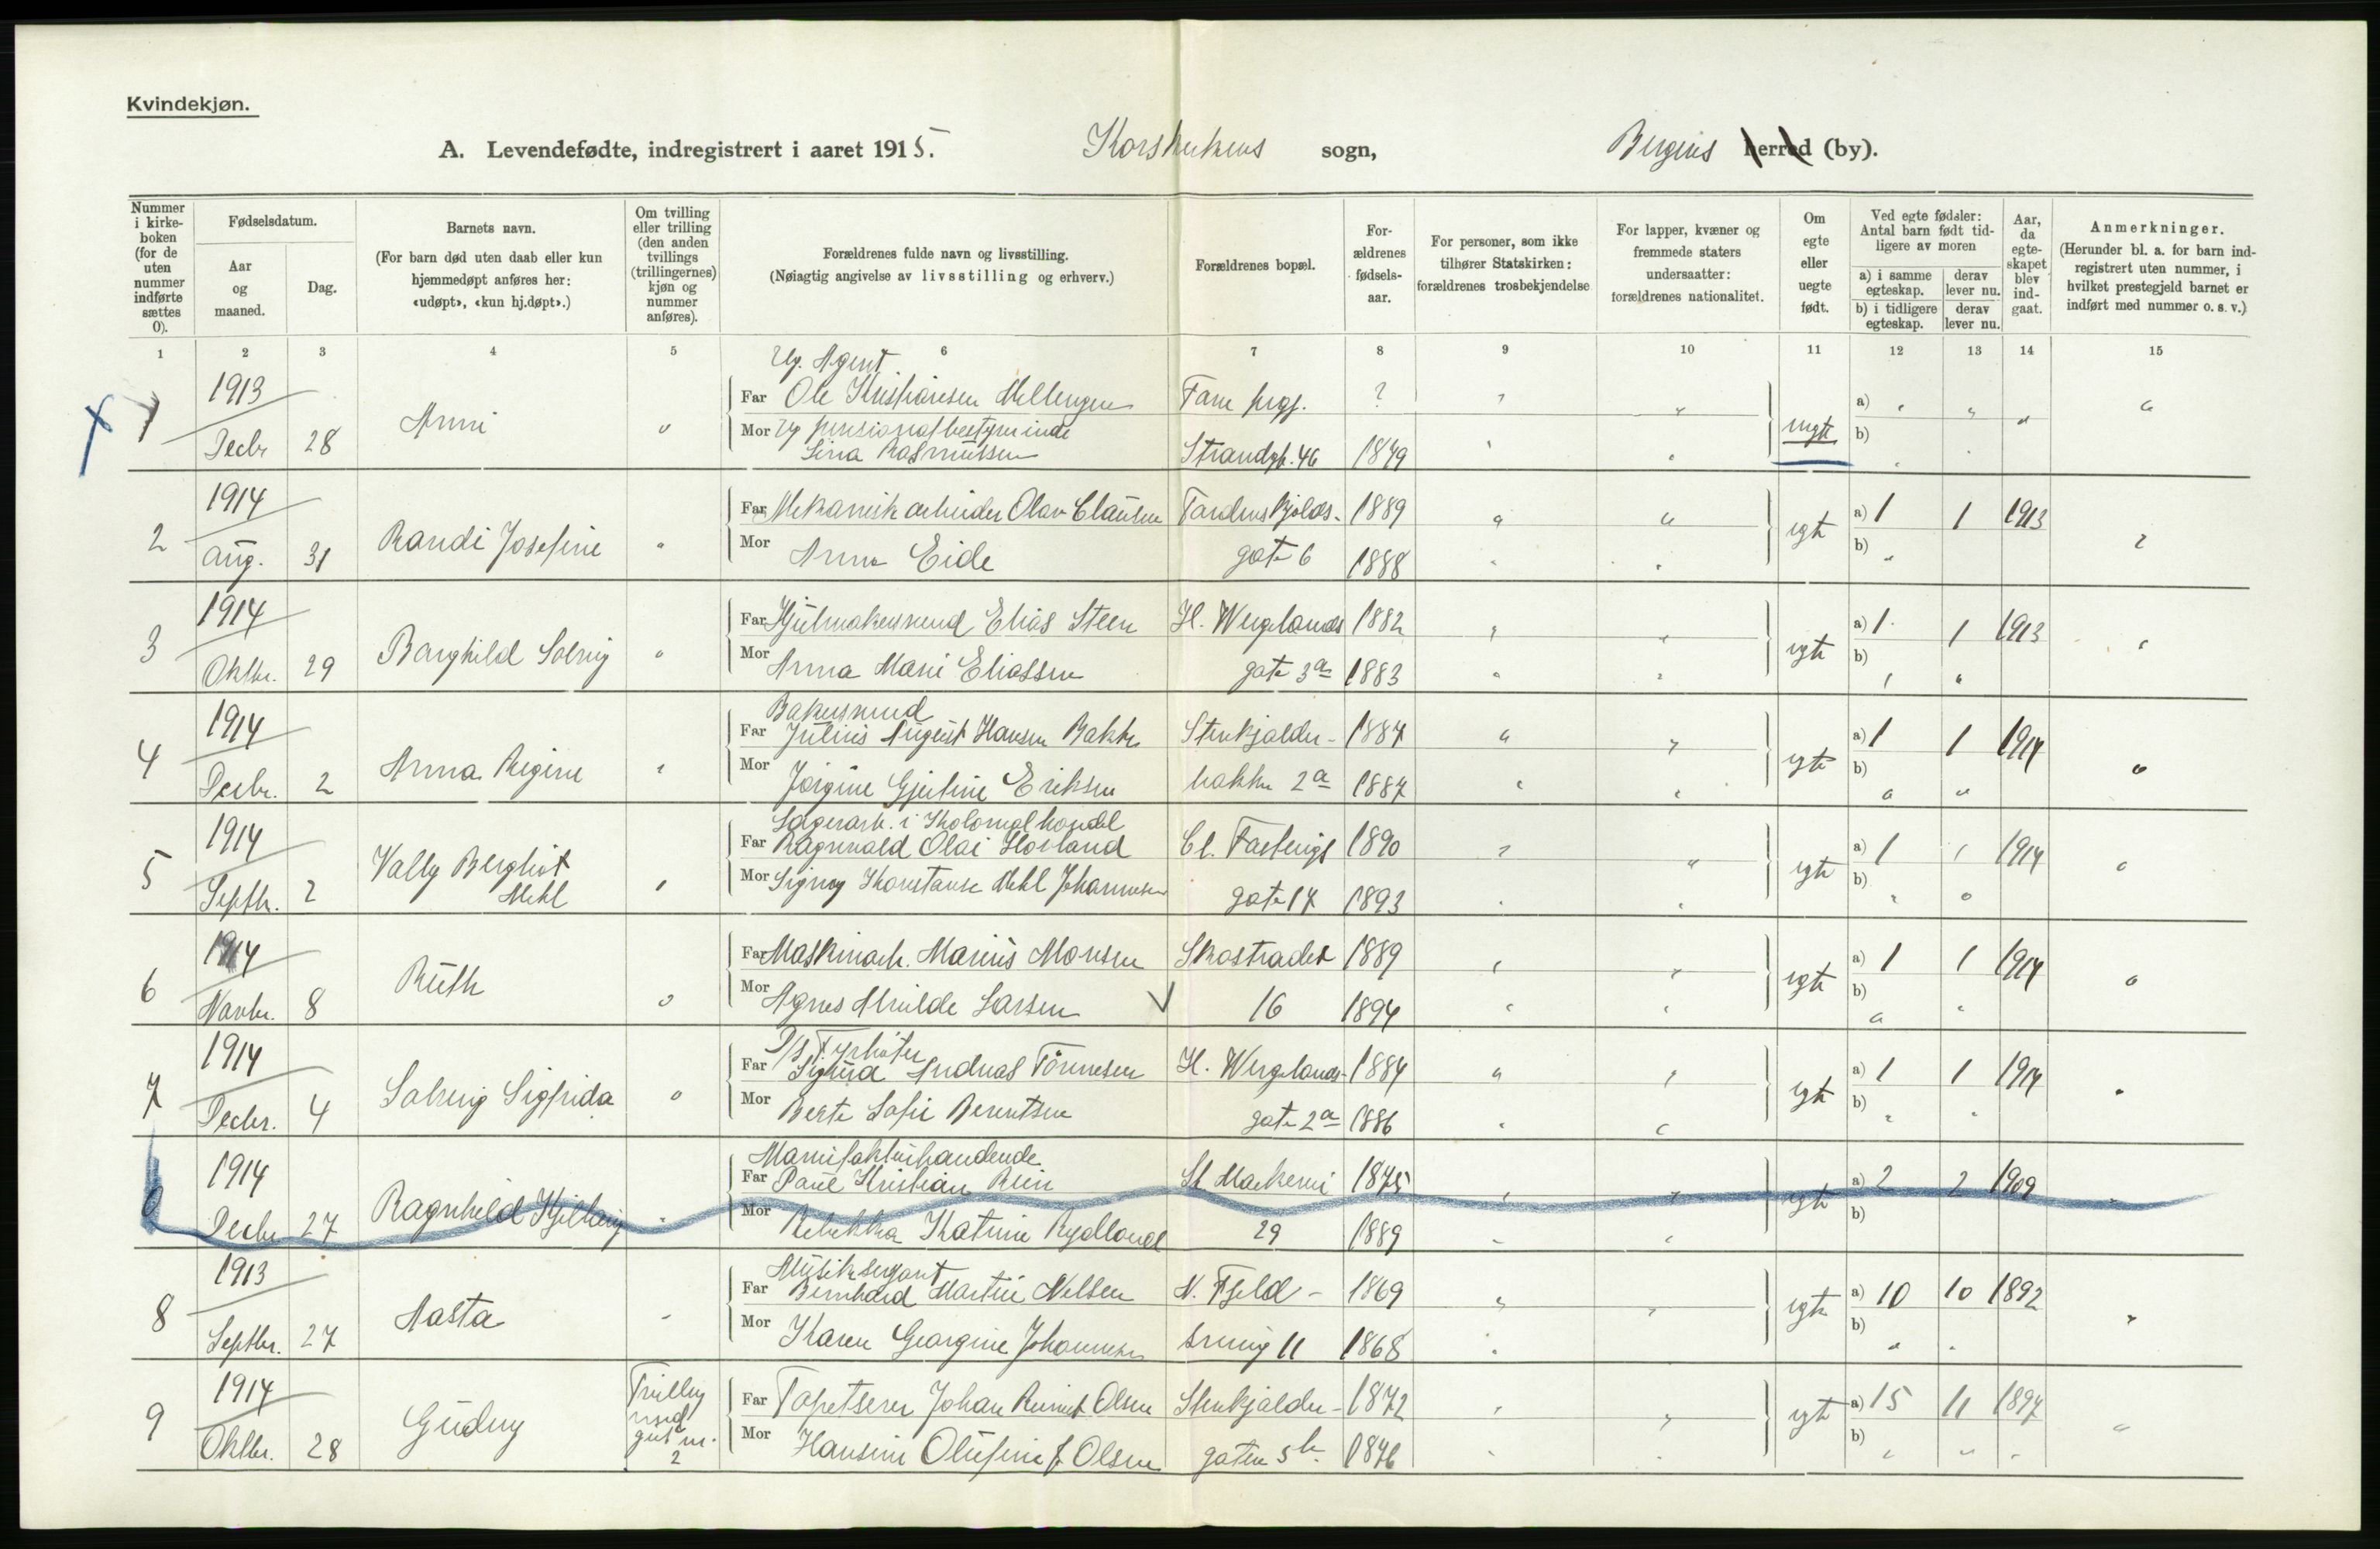 Kvindekjøn.
A. Levendefødte, indregistrert i aaret 1915. Korskirkens sogn, Bergens herred (by).
Nummer i kirke-boken (for de uten nummer indførte sættes 0).
Fødselsdatum.
Aar og maaned.
Dag.
Barnets navn.
(For barn død uten daab eller kun hjemmedøpt anføres her: «udøpt», «kun hj.døpt».)
Om tvilling eller trilling (den anden tvillings (trillingernes) kjøn og nummer anføres).
Forældrenes fulde navn og livsstilling.
(Nøiagtig angivelse av livsstilling og erhverv.)
Forældrenes bopæl.
For-ældrenes fødsels-aar.
For personer, som ikke tilhører Statskirken: forældrenes trosbekjendelse
For lapper, kvæner og fremmede staters undersaatter: forældrenes nationalitet.
Om egte eller uegte født.
Ved egte fødsler: Antal barn født tid-ligere av moren
a) i samme egteskap.
derav lever nu.
b) i tidligere egteskap.
derav lever nu.
Aar, da egte-skapet blev ind-gaat.
Anmerkninger.
(Herunder bl. a. for barn ind-registrert uten nummer, i hvilket prestegjeld barnet er indført med nummer o. s. v.)
1 2 3 4 5 6 7 8 9 10 11 12 13 14 15
Ug. Agent
1 1913 Far Ole Kristiansen Fane prgj. ? a)
Decbr 28 Mor Ug pensionatbestyrerinde uegte b)
Lina Rasmussen Strandgt. 46
2 1914 Far Mekanisk arbeider Olav Clausen Tordenskjolds- 1889 egte a) 1 1 1913
Aug. 31 Randi Josefine Mor Anna Eide gate 6 1888 b)
3 1914 Far Hjulmakersvend Elias Steen H. Wergelands 1882 egte a) 1 1 1913
Oktbr. 29 Borghild Solveig Mor Anna Marie Eliassen gate 3a 1883 b)
Bakersvend
4 1914 Far Julius August Hansen Bakke Stenkjelder- 1887 egte a) 1 1 1914
Decbr. 2 Anna Regine Mor Jørgine Gjertine Eriksen bakke 2a 1887 b)
Lagerarb. i Kolonialhandel
5 1914 Far Ragnvald Olai Hovland 1890 egte a) 1 1 1914
Septbr. 2 Vally Bergliot Mehl Mor Signy Konstanse Mehl Johannesen gate 14 1893 b)
6 1914 Far Maskinarb. Marius Monsen Skostrædet 1889 egte a) 1 1 1914
Novbr. 8 Ruth Mor Agnes Larsen 16 1894 b)
D/S Fyrbøter
7 1914 Far Sigurd Andreas Tönnesen H. Wergelands- 1884 egte a) 1 1 1914
Decbr. 4 Solveig Sigfrida Mor Berte Sofie Berentsen gate 2a 1886 b)
Manufakturhandlende
0 1914 Far Paul Kristian St Markevei 1875 egte a) 2 2 1909
Decbr 27 Ragnhild Mor Rebekka Katrine Rydland 29 1889 b)
Musiksergant
8 1913 Far Bernhard Martin Nilsen N. Fjeld- 1869 egte a) 10 10 1892
Septbr. 27 Aasta Mor Karen Georgine Johannesen 11 1868 b)
9 1914 Trilling med gut nr. 2 Far Tapetserer Johan Olsen Stenkjelder- 1872 egte a) 15 11 1897
Oktbr. 28 Gudny Mor Hansine Olufine f. Olsen gaten 5b. 1876 b)